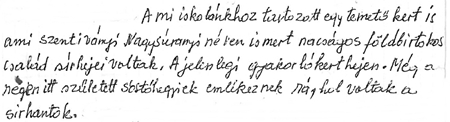 A mi iskolánkhoz tartozott egy temető kert is
ami szentiványi Nagysúrányi néven ismert nacságos földbirtokos
család sírhejei voltak. A jelenlegi gyakorlókert hejen. Még a
régen itt született sóstóhegyiek emlékeznek rá, hul voltak a
sirhantok.